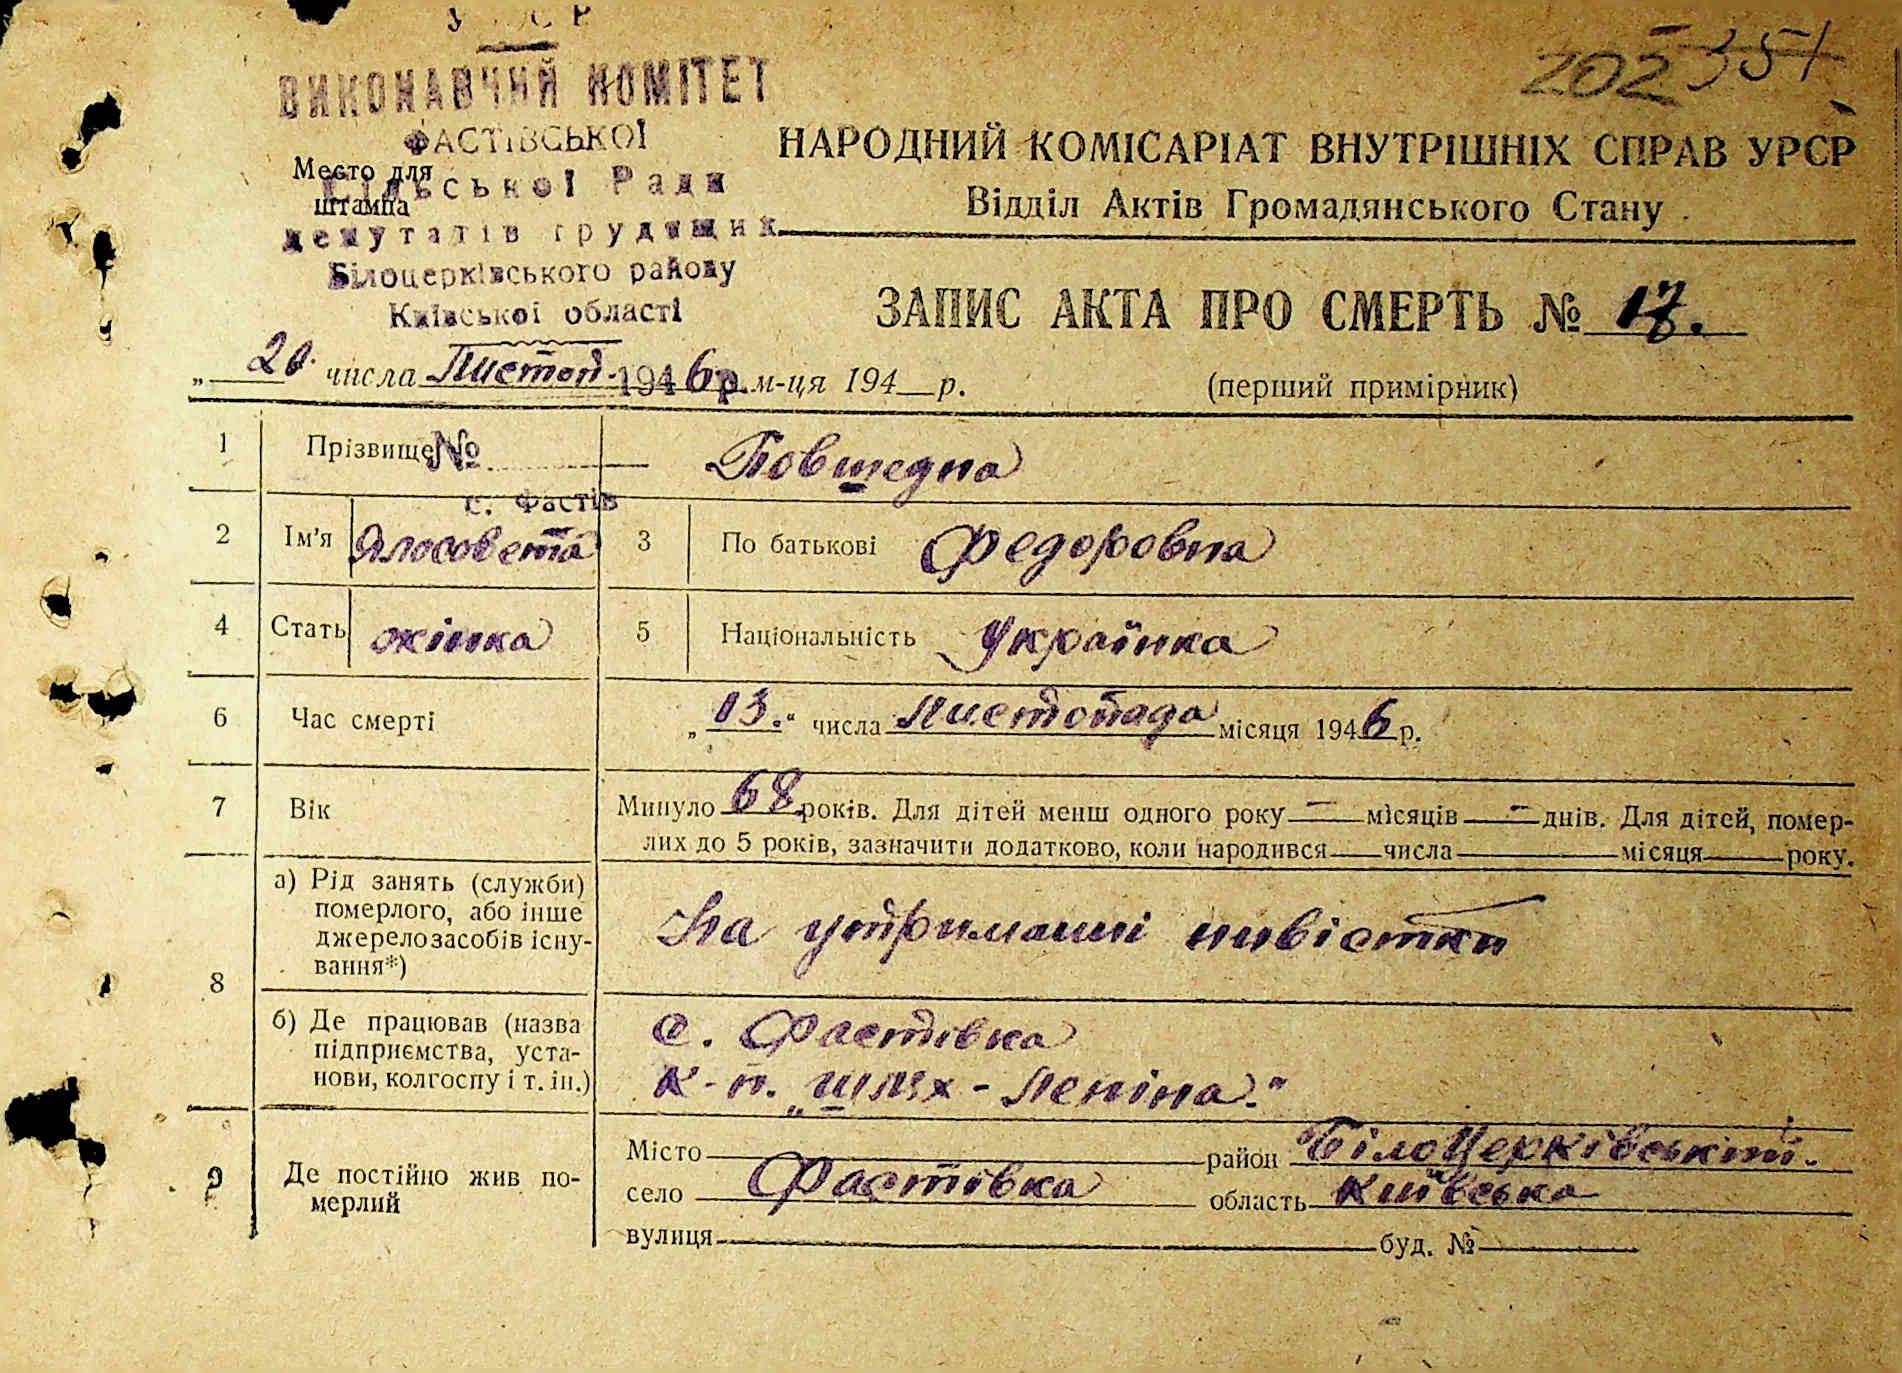 УРСР
ВИКОНАВЧИЙ КОМІТЕТ
ФАСТІВСЬКОЇ
Сільської Ради
депутатів трудящих
Білоцерківського району
Київської області
Место для
штампа
202 351
НАРОДНИЙ КОМІСАРІАТ ВНУТРІШНІХ СПРАВ УРСР
Відділ Актів Громадянського Стану
ЗАПИС АКТА ПРО СМЕРТЬ № 17.
„20." числа Листоп. 1946 р. м-ця 194 р.
(перший примірник)
1 Прізвище № Повшедна
с. Фастів
2 Ім'я Ялосовета 3 По батькові Федоровна
4 Стать жінка 5 Національність Українка
6 Час смерті „13." числа Листопада місяця 1946 р.
7 Вік Минуло 68 років. Для дітей менш одного року — місяців — днів. Для дітей, помер-
лих до 5 років, зазначити додатково, коли народився числа місяця року.
8 а) Рід занять (служби)
померлого, або інше
джерело засобів існу-
вання*)
На утриманні нивістки
б) Де працював (назва
підприємства, уста-
нови, колгоспу і т. ін.)
С. Фастівка
К-п. „Шлях - Леніна."
9 Де постійно жив по-
мерлий
Місто район Білоцерківський.
село Фастівка область Київська
вулиця буд. №